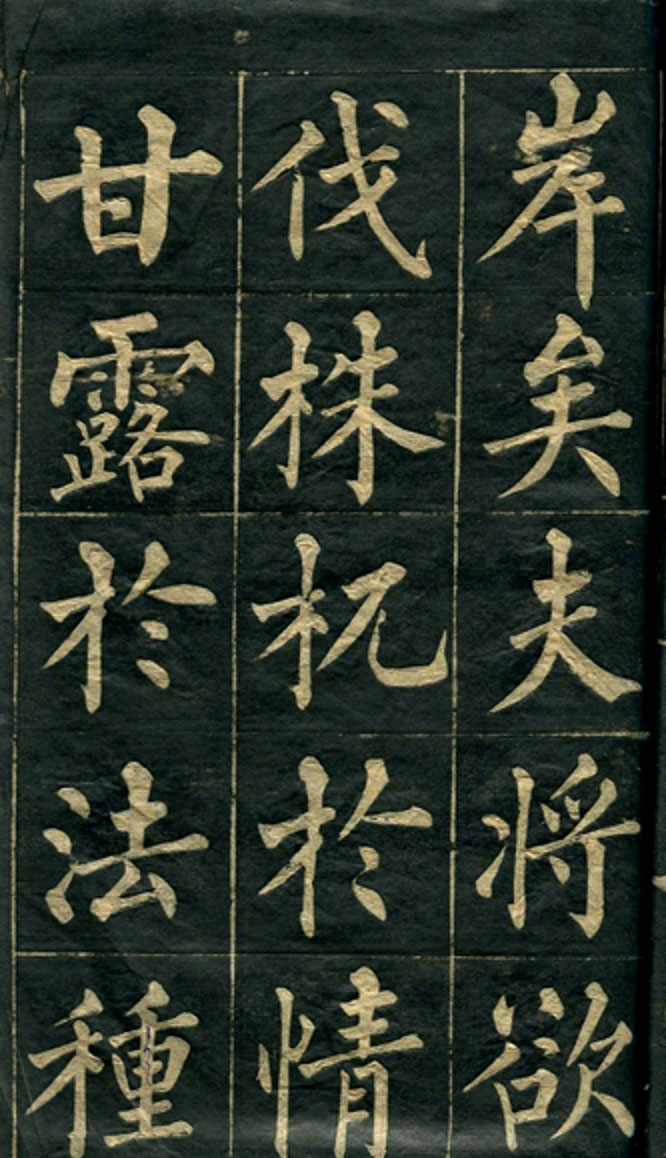 岸矣夫将欲
伐株杌於情
甘露於法種